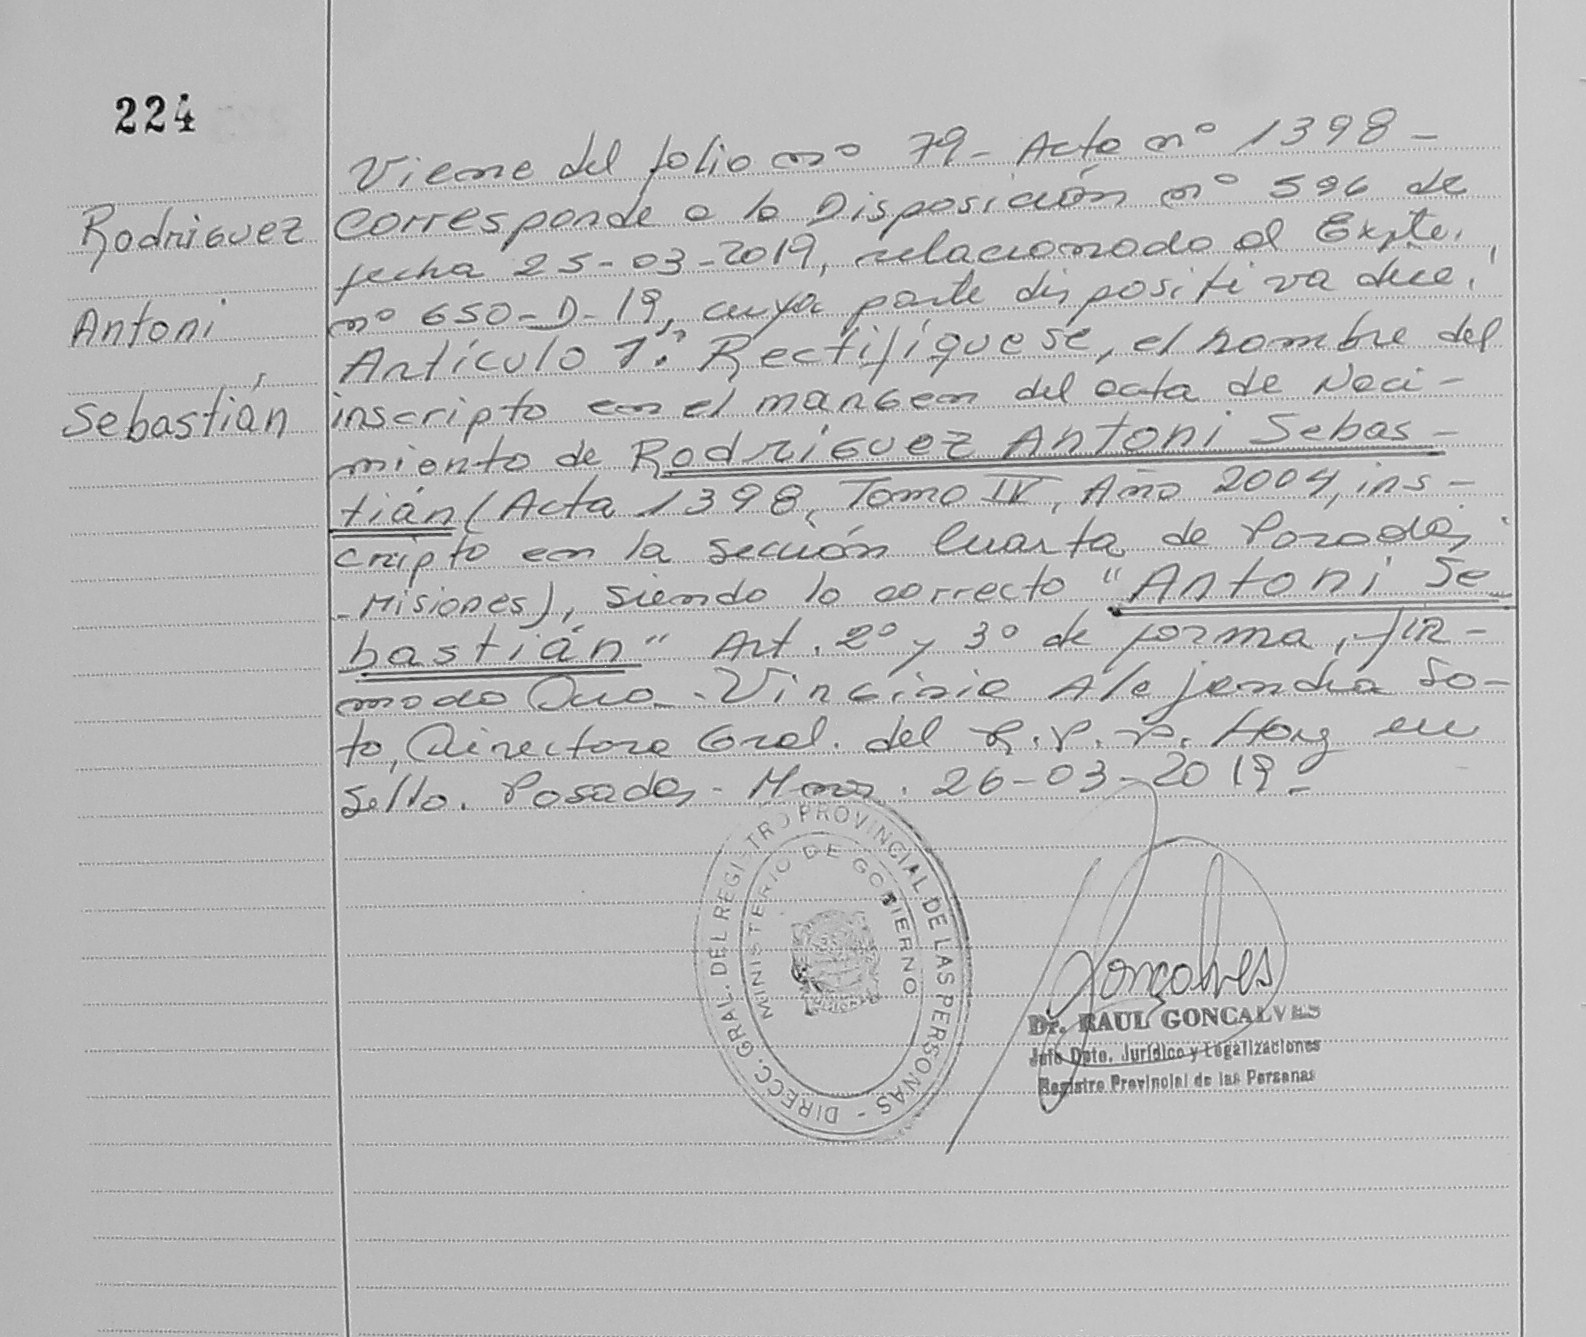 224
Rodriguez
Antoni
Sebastián
Viene del folio nº 79- Acta nº 1398-
Corresponde a la Disposición nº 596 de
fecha 25-03-2019, relacionado al Expte.
nº 650-D-19, cuya parte dispositiva dice:
Artículo 1º: Rectifíquese, el nombre del
inscripto en el margen del acta de Naci-
miento de Rodriguez Antoni Sebas-
tián (Acta 1398, Tomo IV, Año 2004, ins-
cripto en la Sección Cuarta de Posadas,
-Misiones), siendo lo correcto "Antoni Se
bastián" Art. 2º y 3º de forma, fir-
mado Dra. Virginia Alejandra So-
to, Directora Gral. del R.P.P. Hay un
Sello. Posadas- Mnes. 26-03-2019.-
DIRECC. GRAL. DEL REGISTRO PROVINCIAL DE LAS PERSONAS -
MINISTERIO DE GOBIERNO
Gonçalves
Dr. RAUL GONCALVES
Jefe Dpto. Jurídico y Legalizaciones
Registro Provincial de las Personas